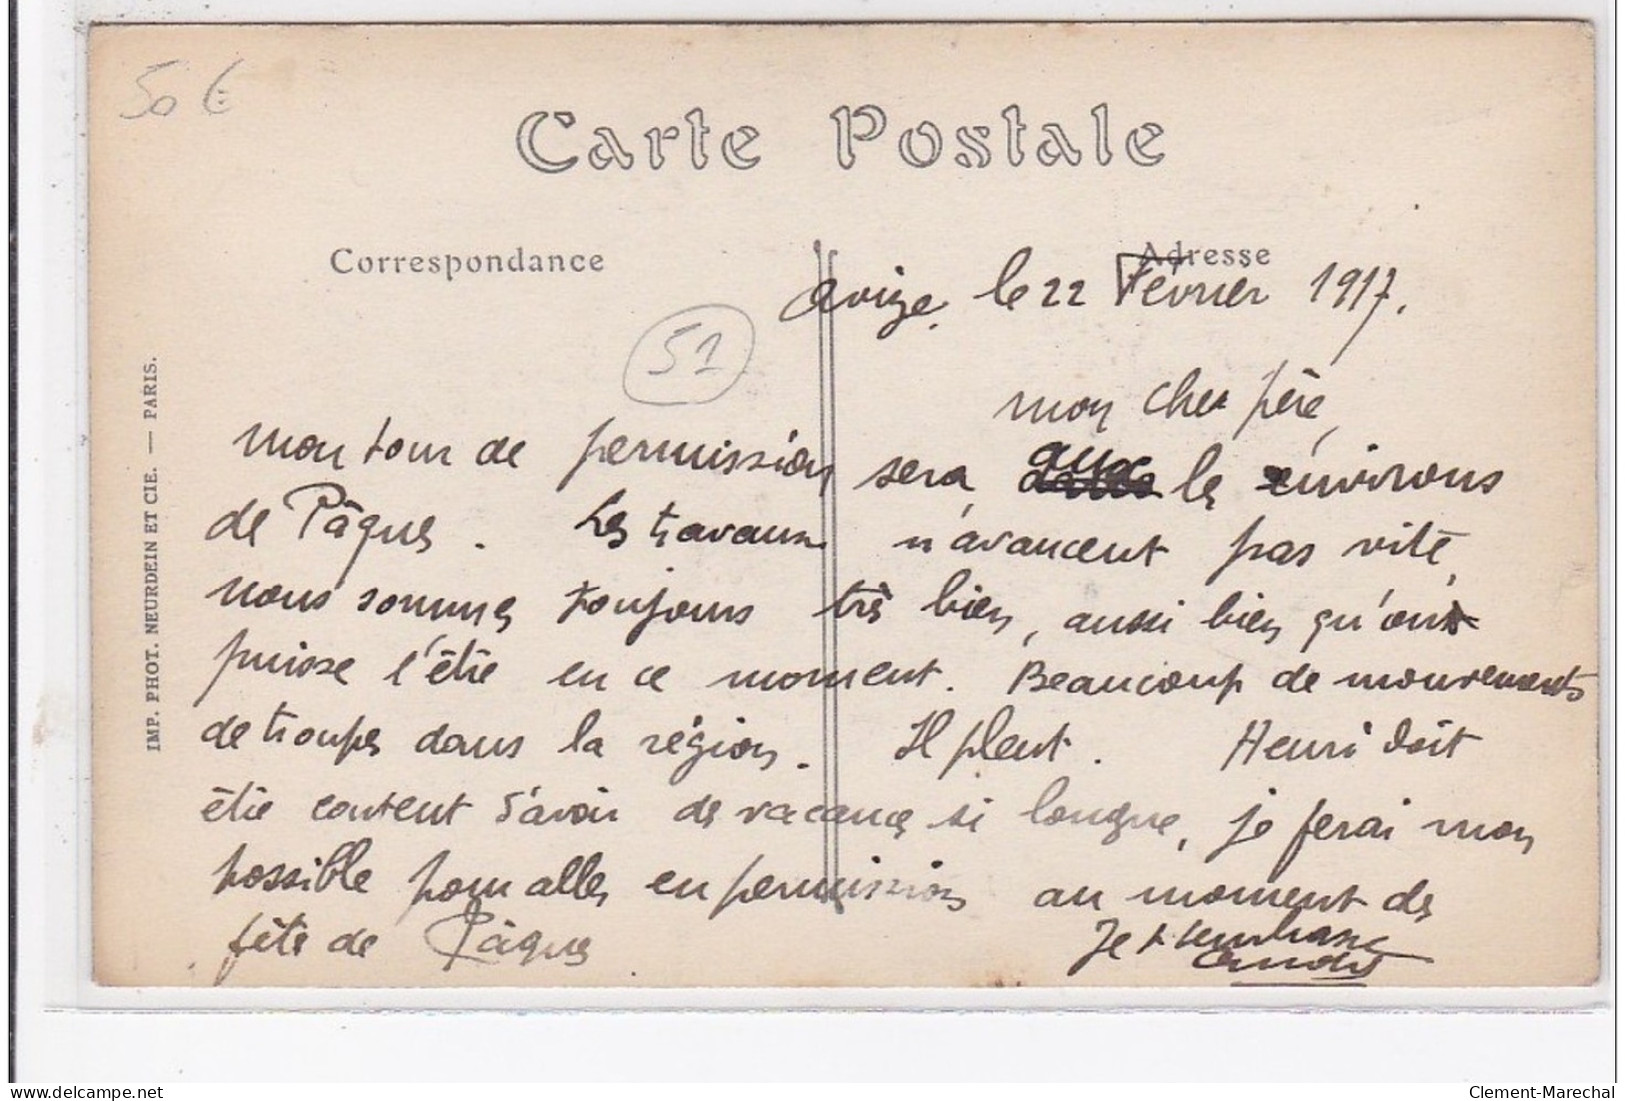 50 €
Carte Postale
Correspondance
Adresse
Avize, le 22 Février 1917.
51
mon cher père,
mon tour de permission sera aux les environs
de Pâques. Les travaux n'avancent pas vite,
nous sommes toujours très bien, aussi bien qu'on
puisse l'être en ce moment. Beaucoup de mouvements
de troupes dans la région. Il pleut. Henri doit
être content d'avoir des vacances si longue, je ferai mon
possible pour aller en permission au moment des
fête de Pâques
Je t'embrasse
André
IMP. PHOT. NEURDEIN ET CIE. — PARIS.
delcampe.net
Clement-Marechal